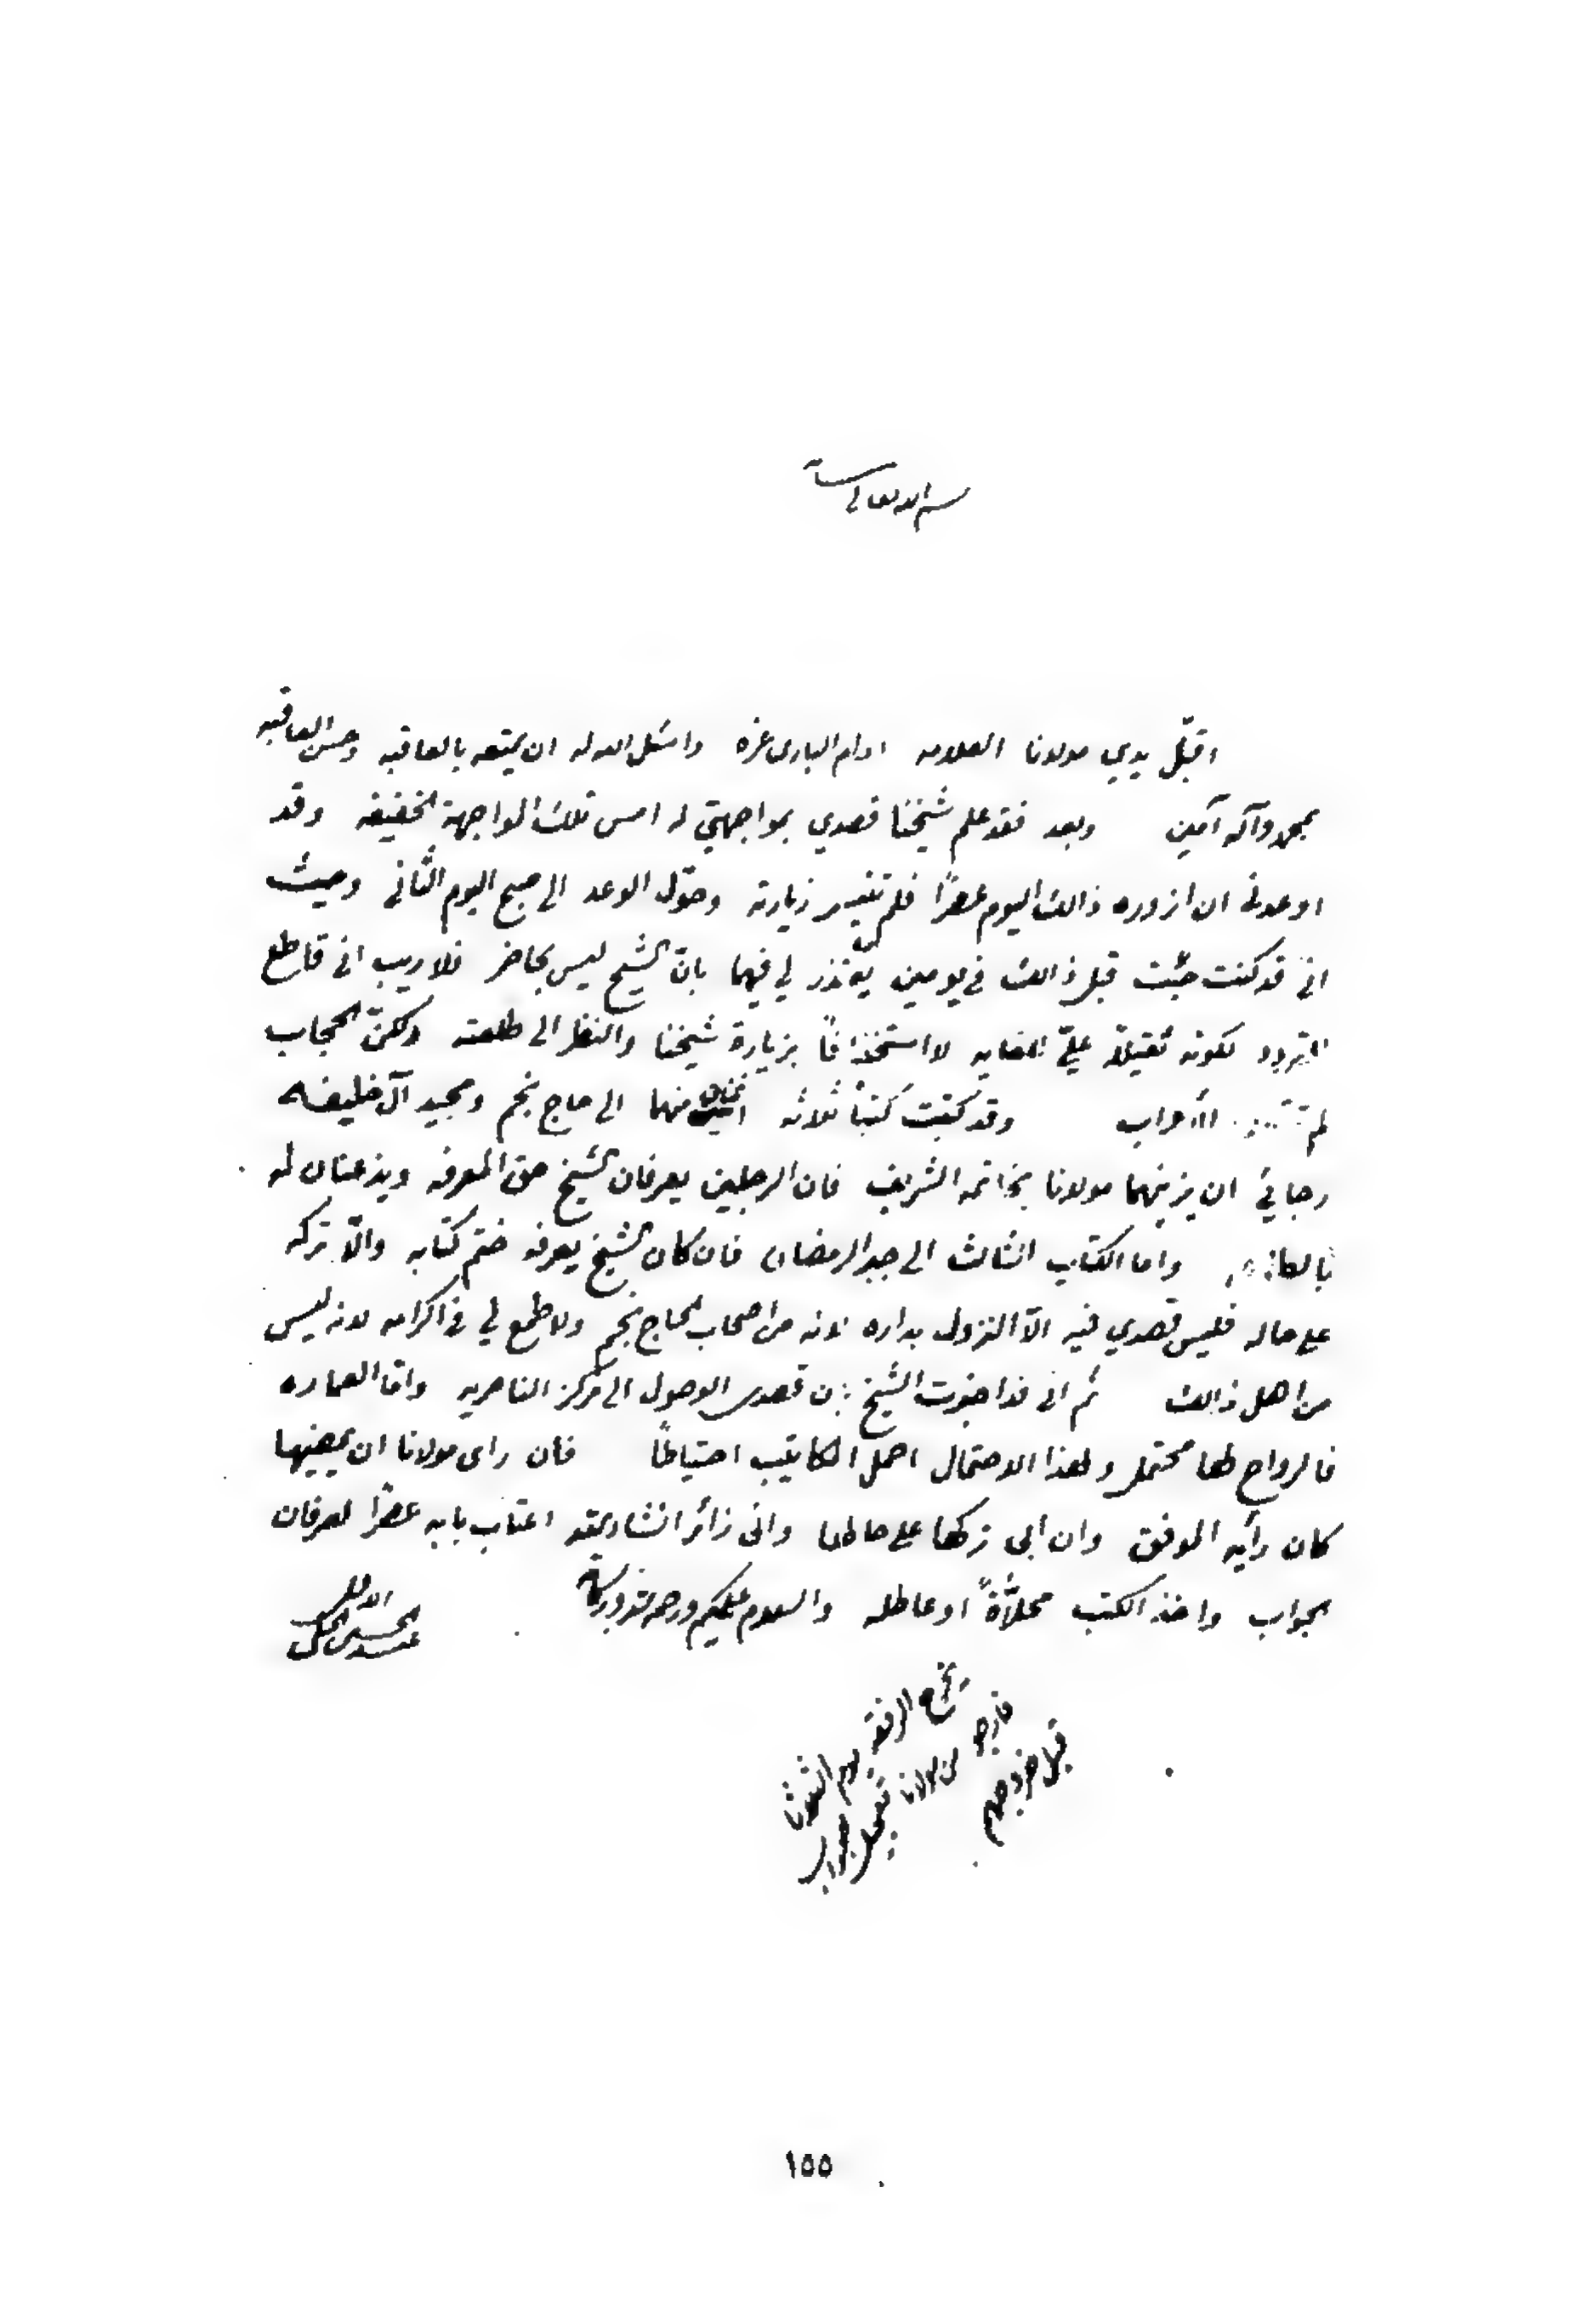 بسم الله تعالى شأنه
اقبّل يدي مولانا العلامه ادام الباري عزه واسئل الله له ان يمتعه بالعافيه وحسن العاقبه
بمحمد وآله آمين وبعد فقد علم شيخنا قصدي بمواجهتي له امس تلك المواجهة الخفيفه وقد
اوعدني ان ازوره ذالك اليوم عصرًا فلم تتيسر زيارته وحوّل الوعد الى صبح اليوم الثاني وحيث
اني قد كنت جئت قبل ذالك في يومين يعتذر لي فيهما بانّ الشيخ ليس بحاضر فلا ريب اني قاطع
التردد لكونه ثقيلاً عليّ للغايه لا استخفافًا بزيارة شيخنا والنظر الى طلعته ولكنّ الحجاب
لم وقد كتبت كتبًا ثلاثه اثنان منهما الى حاج نجم ومجيد آل خليفه
رجائي ان يزينهما مولانا بخاتمه الشريف فان الرجلين يعرفان الشيخ حق المعرفه ويذعنان له
واما الكتاب الثالث الى جبر الرمضان فان كان الشيخ يعرفه ختم كتابه والّا تركه
على حاله فليس قصدي فيه الّا النزول بداره لانه من اصحاب الحاج نجم ولا طمع لي في اكرامه لانه ليس
من اهل ذالك ثم اني قد اخبرت الشيخ بان قصدي الوصول الى مركز الناصريه وامّا العماره
فالرواح لها محتمل ولهذا الاحتمال احمل المكاتيب احتياطًا فان راى مولانا ان يمضيها
كان رأيه الموفق وان ابى تركها على حالها واني زائر انشاء الله اعتاب بابه عصرًا لعرفان
الجواب واخذ الكتب محلاّةً او عاطله والسلام عليكم ورحمة الله وبركاته
الاقل
عبد الحسين الحلي